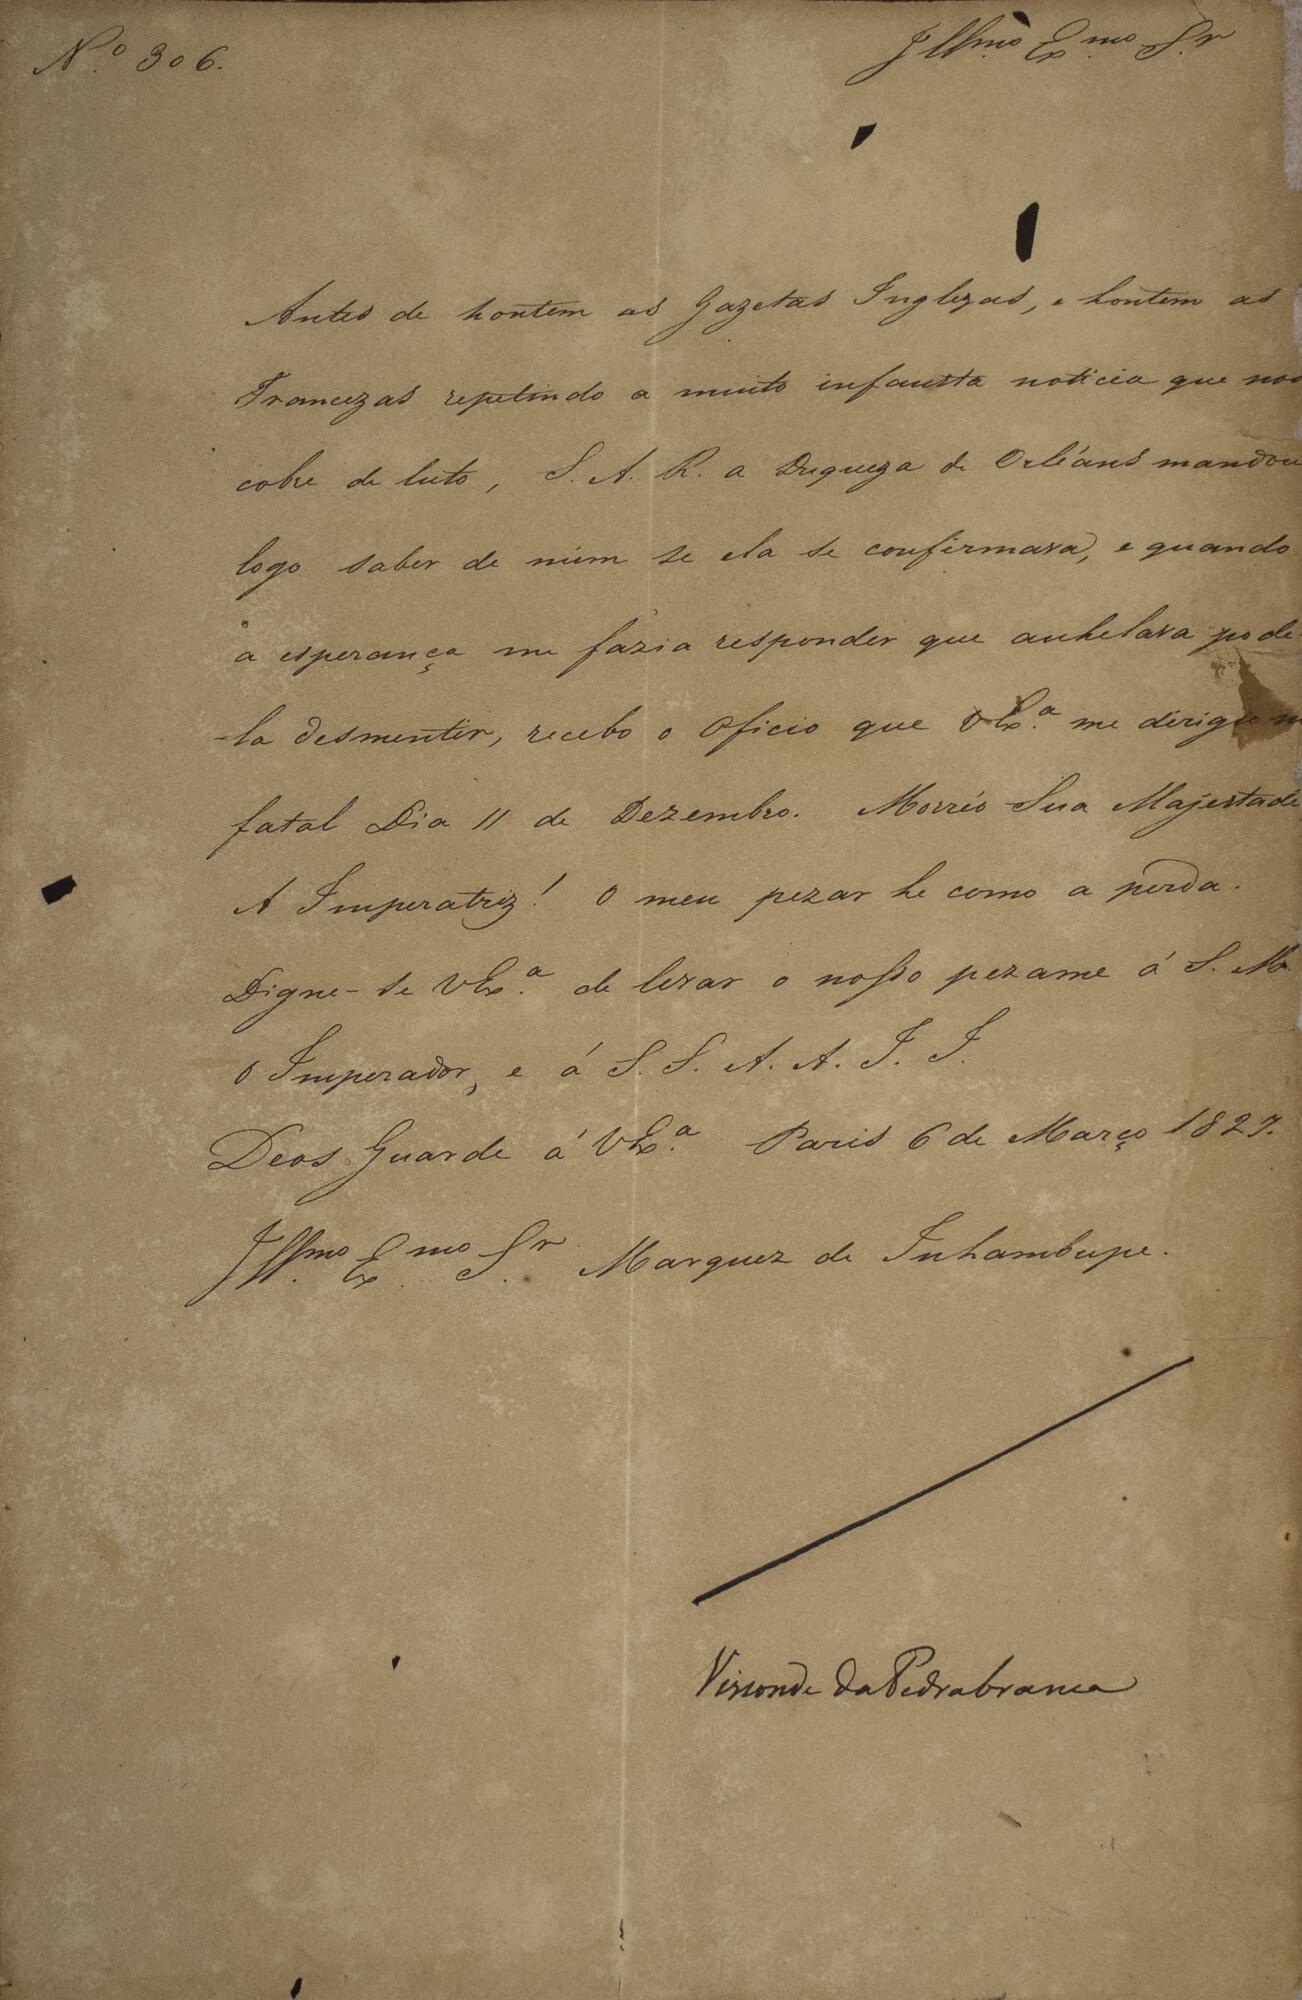 N.º 306.
Illmo. Exmo. Sr.
Antes de hontem as Gazetas Inglezas, e hontem as
Francezas repetindo a muito infausta noticia que nos
cobre de luto, S. A. R. a Duqueza de Orléans mandou
logo saber de mim se ela se confirmava, e quando
a esperança me fazia responder que anhelava pode-
-la desmentir, recebo o Oficio que VExª. me dirigio
fatal Dia 11 de Dezembro. Morréo Sua Majestade
A Imperatriz! O meu pezar he como a perda.
Digne-se VExª. de levar o nosso pezame á S. M.
O Imperador, e á S. S. A. A. I. I.
Deos Guarde á VExª. Paris 6 de Março 1827.
Illmo. Exmo. Sr. Marquez de Inhambupe.
Visconde da Pedrabranca